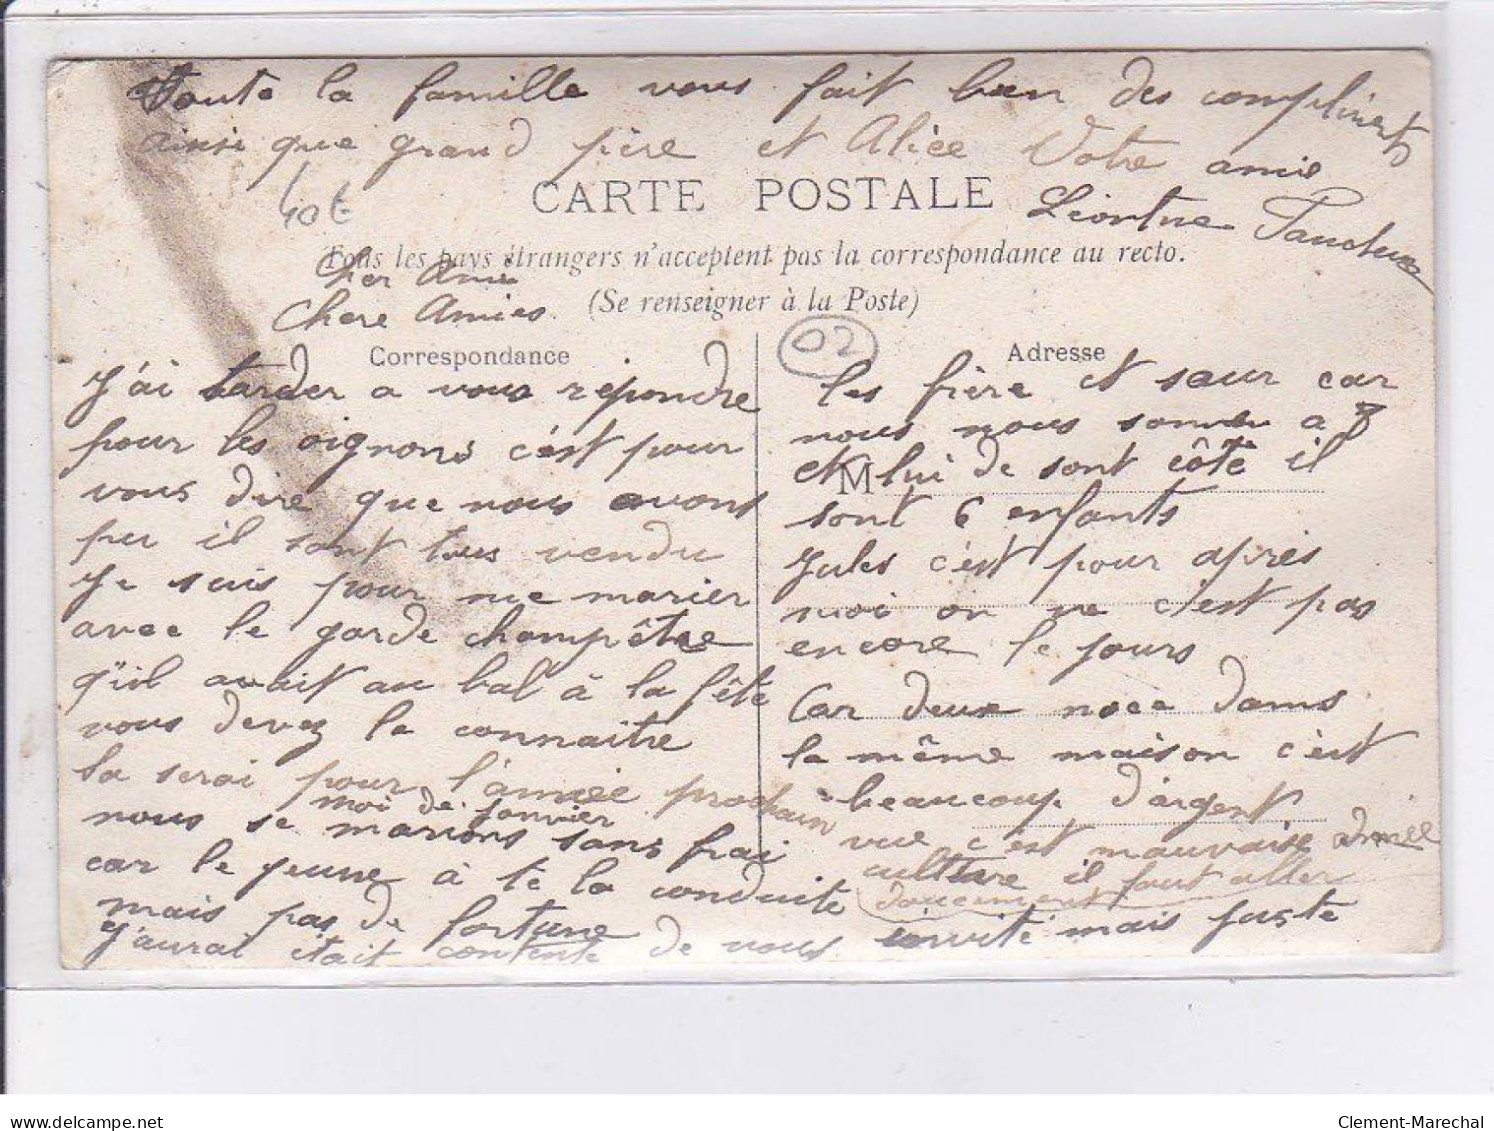 Toute la famille vous fait bien des compliments
ainsi que grand père et Alice Votre amie
CARTE POSTALE
Léontine
40€
Tous les pays étrangers n'acceptent pas la correspondance au recto.
(Se renseigner à la Poste)
Cher Ami
Chere Amies
02
Correspondance
J'ai tarder a vous repondre
pour les oignons c'est pour
vous dire que nous avons
pu il sont tous vendu
Je suis pour me marier
avec le garde champêtre
qu'il avait au bal à la fête
vous devez le connaitre
la serai pour l'année prochain
moi de janvier
nous se marions sans frai
car le jeune à te la conduite
mais pas de fortune
j'aurai était contente de vous invité mais juste
Adresse
les frère et sœur car
nous nous somme a 8
M
et lui de sont côté il
sont 6 enfants
Jules c'est pour après
moi on ne c'est pas
encore le jours
Car deux noce dams
la même maison c'est
beaucoup d'argent
vue c'est mauvaise année
culture il faut aller
doucement
delcampe.net
Clement-Marechal